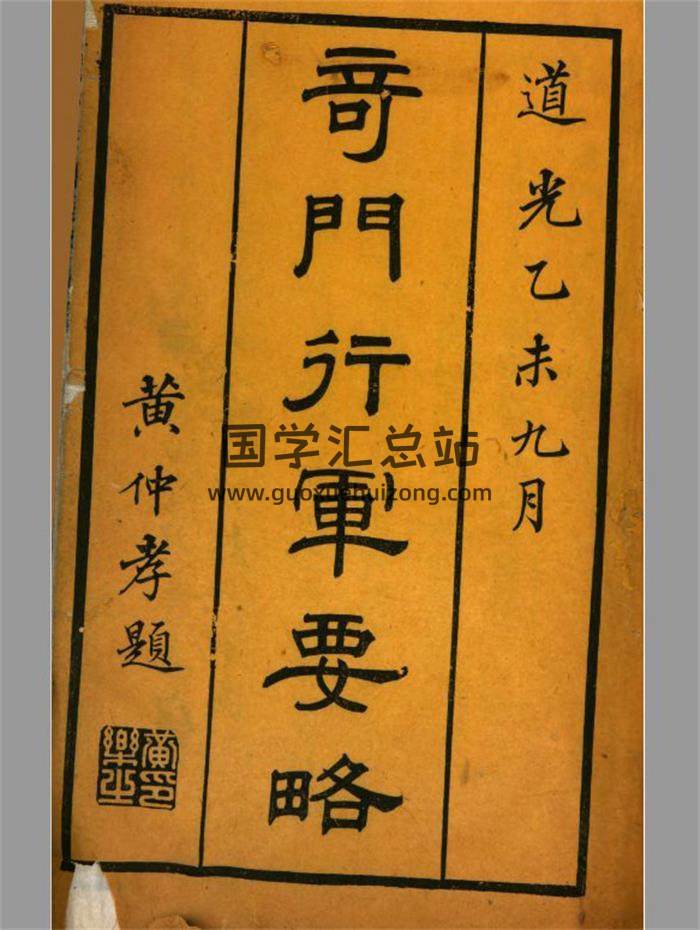 道光乙未九月
奇門行軍要略
黄仲孝題
黄印
樂之
国学汇总站
www.guoxuehuizong.com